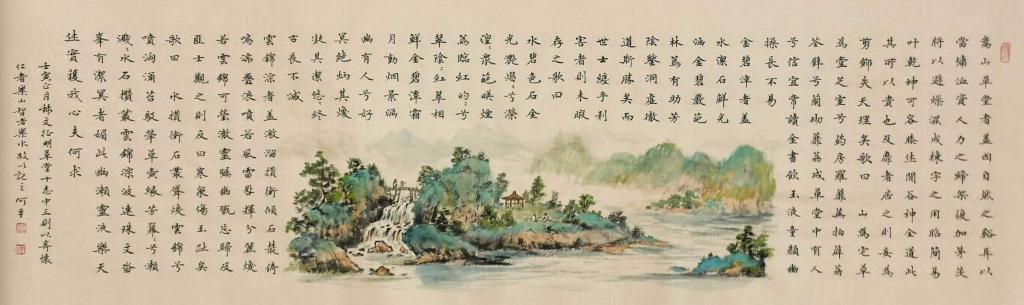 嵩山草堂者蓋因自然之谿阜以
當墉洫資人力之締架復加茅茨
將以避燥濕成棟宇之用昭簡易
叶乾坤可容膝休閒谷神全道此
其所以貴也及靡者居之則妄為
剪飾失天理矣歌曰 山為宅草
為堂芝室兮药房羅蘼蕪拍薜荔
荃壁兮蘭砌蘼蕪成草堂中有人
兮信宜常讀金書飲玉液童顏幽
操長不易
金碧潭者蓋
水潔石鮮光
涵金碧巖葩
林蔦有助芳
陰鑒洞虛徹
道斯勝矣而
世士纏乎利
害者則未暇
存之歌曰
水碧色石金
光灔熠〻兮濚
湟〻泉葩映煙
蔦臨紅灼〻
翠陰〻紅翠相
鮮金碧潭霜
月動煙景滴
幽有人兮好
冥絕炳其煥
凝其潔悠〻終
古長不滅
雲錦淙者蓋激溜攢衝傾石叢倚
鳴湍疊濯噴若風雷詭輝分麗煥
若雲錦可瑩徹靈矚幽玩忘歸及
匪士觀之則反曰寒泉傷玉趾矣
歌曰 水攢衝石叢聳煥雲錦兮
噴洶湧苔駁犖草夤緣芳冪兮瀨
濺〻水石攢叢雲錦淙波連珠文沓
峯有潔冥者媚此幽瀨靈液樂天
休實獲我心夫何求
壬寅正月錄文征明草堂十志中三則以寄懷
仁者樂山智者樂水故以記之 何平